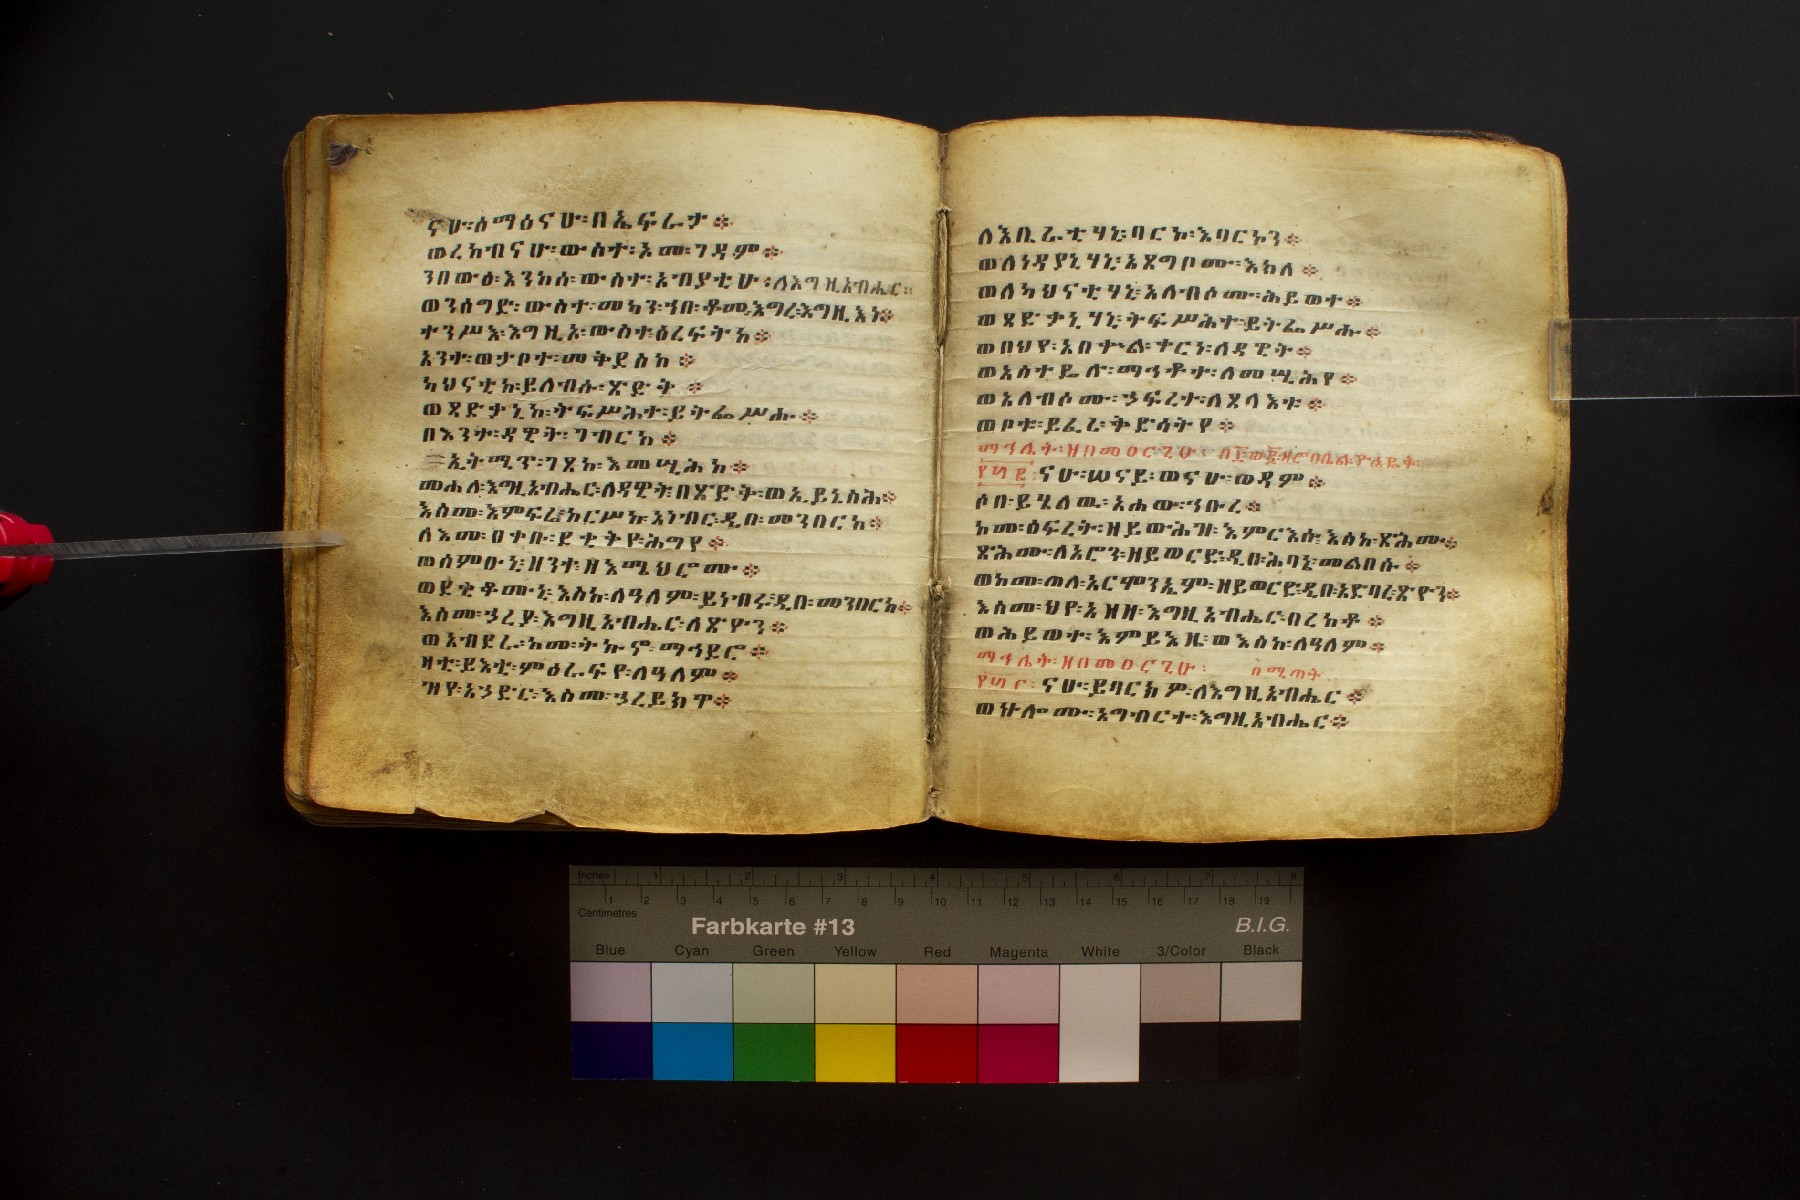 ናሁ፡ሰማዕናሁ፡በኤፍራታ፨
ወረከብናሁ፡ውስተ፡ኦመ፡ገዳም፨
ንበውዕ፡እንከሰ፡ውስተ፡አብያቲሁ፡ለእግዚአብሔር፨
ወንሰግድ፡ውስተ፡መካን፡ኀበ፡ቆመ፡እግረ፡እግዚእነ፨
ተንሥእ፡እግዚኦ፡ውስተ፡ዕረፍትከ፨
አንተ፡ወታቦተ፡መቅደስከ፨
ካህናቲከ፡ይለብሱ፡ጽድቀ፨
ወጻድቃኒከ፡ትፍሥሕተ፡ይትፌሥሑ፨
በእንተ፡ዳዊት፡ገብርከ፨
ኢትሚጥ፡ገጸከ፡እመሢሕከ፨
መሐለ፡እግዚአብሔር፡ለዳዊት፡በጽድቅ፡ወኢይኔስሕ፨
እስመ፡እምፍሬ፡ከርሥከ፡አነብር፡ዲበ፡መንበርከ፨
ለእመ፡ዐቀቡ፡ደቂቅየ፡ሕግየ፨
ወስምዑኒ፡ዘንተ፡ዘእሜህሮሙ፨
ወደቂቆሙኒ፡እስከ፡ለዓለም፡ይነብሩ፡ዲበ፡መንበርከ፨
እስመ፡ኃረያ፡እግዚአብሔር፡ለጽዮን፨
ወአብደራ፡ከመ፡ትኩኖ፡ማኅደሮ፨
ዛቲ፡ይእቲ፡ምዕራፍየ፡ለዓለም፨
ዝየ፡አኃድር፡እስመ፡ኃረይክዋ፨
ለእቤራቲሃኒ፡ባርኮ፡እባርኮን፨
ወለነዳያኒሃኒ፡አጸግቦሙ፡እክለ፨
ወለካህናቲሃኒ፡አለብሶሙ፡ሕይወተ፨
ወጻድቃኒሃኒ፡ትፍሥሕተ፡ይትፌሥሑ፨
ወበህየ፡አበቍል፡ቀርነ፡ለዳዊት፨
ወአስተዴሉ፡ማኅቶተ፡ለመሢሕየ፨
ወአለብሶሙ፡ኃፍረተ፡ለጸላእቱ፨
ወቦቱ፡ይፈሪ፡ቅድሳትየ፨
ማኅሌት፡ዘበመዐርጊሁ፡
ናሁ፡ሠናይ፡ወናሁ፡ወዳም፨
ሶበ፡ይሄልዉ፡አሐው፡ኅቡረ፨
ከመ፡ዕፍረት፡ዘይውሕዝ፡እምርእሱ፡እስከ፡ጽሕሙ፨
ጽሕሙ፡ለአሮን፡ዘይወርድ፡ዲበ፡ሕባኔ፡መልበሱ፨
ወከመ፡ጠለ፡አርሞንኤም፡ዘይወርድ፡ዲበ፡አድባረ፡ጽዮን፨
እስመ፡ህየ፡አዘዘ፡እግዚአብሔር፡በረከቶ፨
ወሕይወተ፡እምይእዜ፡ወእስከ፡ለዓለም፨
ማኅሌት፡ዘበመዐርጊሁ፡
ናሁ፡ይባርክዎ፡ለእግዚአብሔር፨
ወኵሎሙ፡አግብርተ፡እግዚአብሔር፨
Inches 1 2 3 4 5 6 7 8
1 2 3 4 5 6 7 8 9 10 11 12 13 14 15 16 17 18 19
Centimetres
Farbkarte #13 B.I.G.
Blue Cyan Green Yellow Red Magenta White 3/Color Black